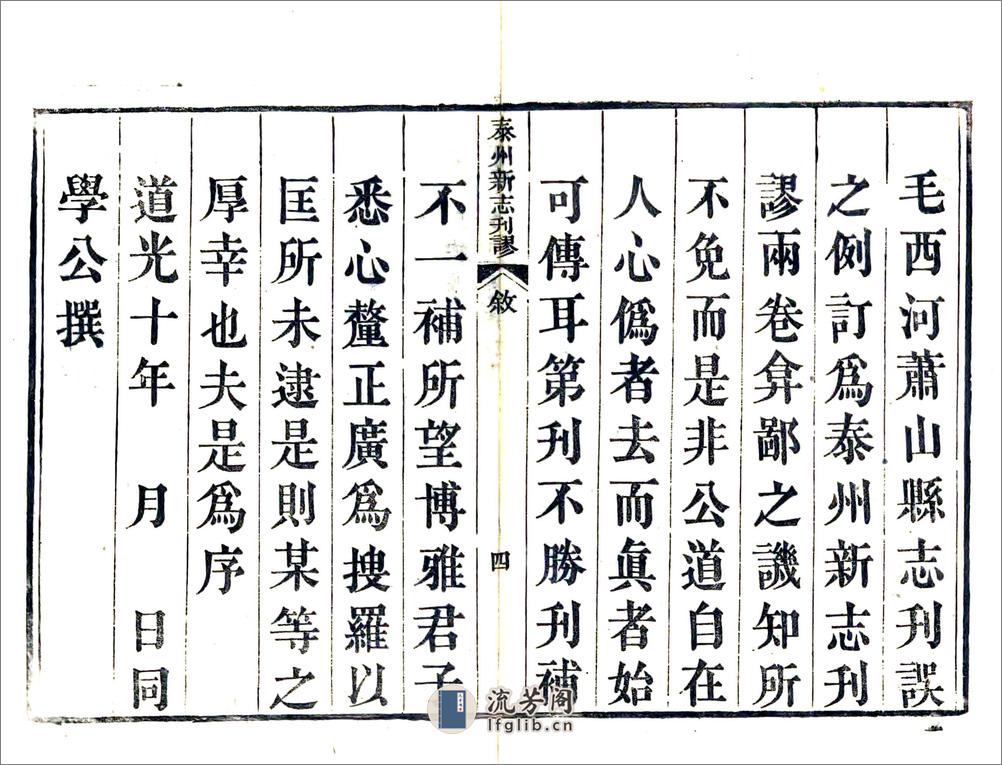 毛西河蕭山縣志刊誤
之例訂爲泰州新志刊
謬兩卷弇鄙之譏知所
不免而是非公道自在
人心僞者去而眞者始
可傳耳第刊不勝刊補
泰州新志刊謬 敘 四
不一補所望博雅君子
悉心釐正廣爲搜羅以
匡所未逮是則某等之
厚幸也夫是爲序
道光十年 月 日同
學公撰
流芳阁
lfglib.cn